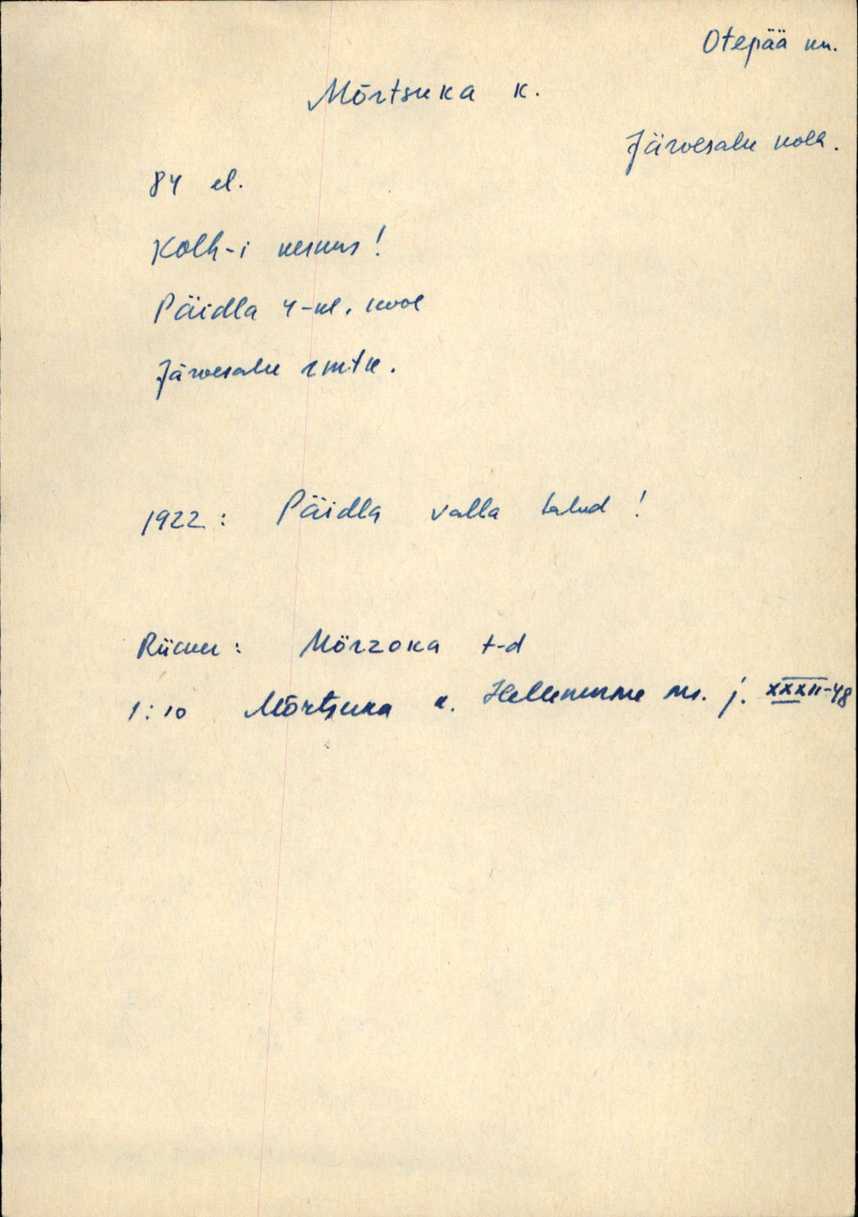 Otepää kn.
Mõrtsuka k.
Järvesalu kolh.
84 el.
Kolh-i keskus!
Päidla 4-kl. kool
Järvesalu rmtk.
1922: Päidla valla talud!
Rücker: Mörzoka t-d
1:10 Mõrtsuka k. Hellenurme ms. j. XXXII-48